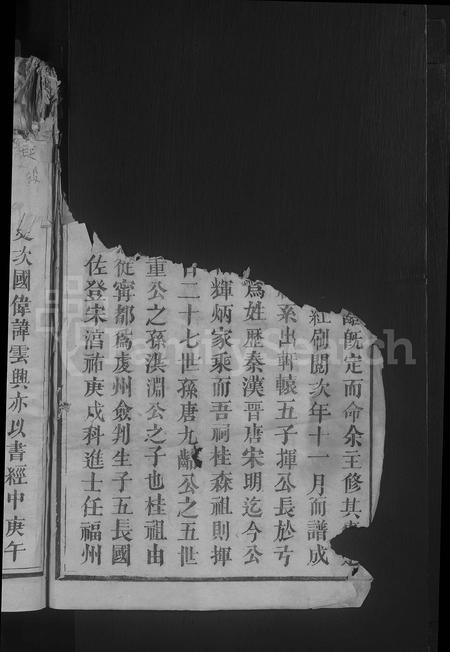 既定而命余主修其
紅刷閱次年十一月而譜成
系出軒轅五子揮公長於弓
爲姓歷秦漢晉唐宋明迄今公
輝炳家乘而吾祠桂森祖則揮
百二十七世孫唐九齡公之五世
重公之孫淇淵公之子也桂祖由
從寧都爲虔州僉判生子五長國
佐登宋淳祐庚戌科進士任福州
次國偉諱雲興亦以書經中庚午
FamilySearch